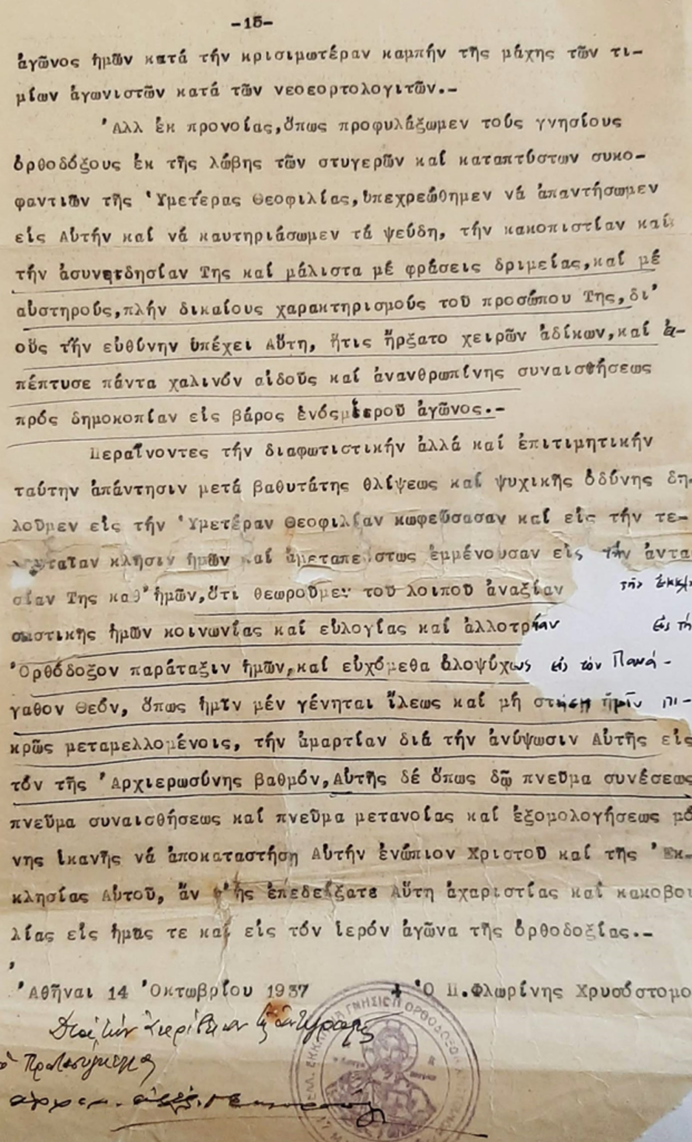 -15-
ἀγῶνος ἡμῶν κατά τήν κρισιμωτέραν καμπήν τῆς μάχης τῶν τι-
μίων ἀγωνιστῶν κατά τῶν νεοεορτολογιτῶν.-
'Αλλ ἐκ προνοίας,ὅπως προφυλάξωμεν τούς γνησίους
ὀρθοδόξους ἐκ τῆς λώβης τῶν στυγερῶν καί καταπτύστων συκο-
φαντιῶν τῆς 'Υμετέρας Θεοφιλίας,ὑπεχρεώθημεν νά ἀπαντήσωμεν
εἰς Αὐτήν καί νά καυτηριάσωμεν τά ψεύδη, τήν κακοπιστίαν καί
τήν ἀσυνειδησίαν Της καί μάλιστα μέ φράσεις δριμείας,καί μέ
αὐστηρούς,πλήν δικαίους χαρακτηρισμούς τοῦ προσώπου Της,δι'
οὕς τήν εὐθύνην ὑπέχει Αὕτη, ἥτις ἤρξατο χειρῶν ἀδίκων,καί ἀ-
πέπτυσε πάντα χαλινόν αἰδοῦς καί ἀνανθρωπίνης συναισθήσεως
πρός δημοκοπίαν εἰς βάρος ἑνός ἱεροῦ ἀγῶνος.-
Περαίνοντες τήν διαφωτιστικήν ἀλλά καί ἐπιτιμητικήν
ταύτην ἀπάντησιν μετά βαθυτάτης θλίψεως καί ψυχικῆς ὀδύνης δη-
λοῦμεν εἰς τήν 'Υμετέραν Θεοφιλίαν κωφεύσασαν καί εἰς τήν τε-
λευταῖαν κλῆσιν ἡμῶν καί ἀμεταπείστως ἐμμένουσαν εἰς τήν ἀντα
σίαν Της καθ'ἡμῶν,ὅτι θεωροῦμεν τοῦ λοιποῦ ἀναξίαν τῆς ἐκκλη
σιαστικῆς ἡμῶν κοινωνίας καί εὐλογίας καί ἀλλοτρίαν εἰς τή
'Ορθόδοξον παράταξιν ἡμῶν,καί εὐχόμεθα ὁλοψύχως εἰς τόν Πανά-
γαθον Θεόν, ὅπως ἡμῖν μέν γένηται ἵλεως καί μή στήσῃ ἡμῖν πι-
κρῶς μεταμελλομένοις, τήν ἁμαρτίαν διά τήν ἀνύψωσιν Αὐτῆς εἰς
τόν τῆς 'Αρχιερωσύνης βαθμόν,Αὐτῆς δέ ὅπως δῷ πνεῦμα συνέσεως
πνεῦμα συναισθήσεως καί πνεῦμα μετανοίας καί ἐξομολογήσεως μό
νης ἱκανῆς νά ἀποκαταστήσῃ Αὐτήν ἐνώπιον Χριστοῦ καί τῆς 'Εκ-
κλησίας Αὐτοῦ, ἄν ἐπεδείξατε Αὕτη ἀχαριστίας καί κακοβου
λίας εἰς ἡμᾶς τε καί εἰς τόν ἱερόν ἀγῶνα τῆς ὀρθοδοξίας.-
'Αθῆναι 14 'Οκτωβρίου 1937 + 'Ο Π.Φλωρίνης Χρυσόστομο
Διά τήν ἀκρίβειαν τῆς ἀντιγραφῆς
ὁ Πρωτοσύγκελλος